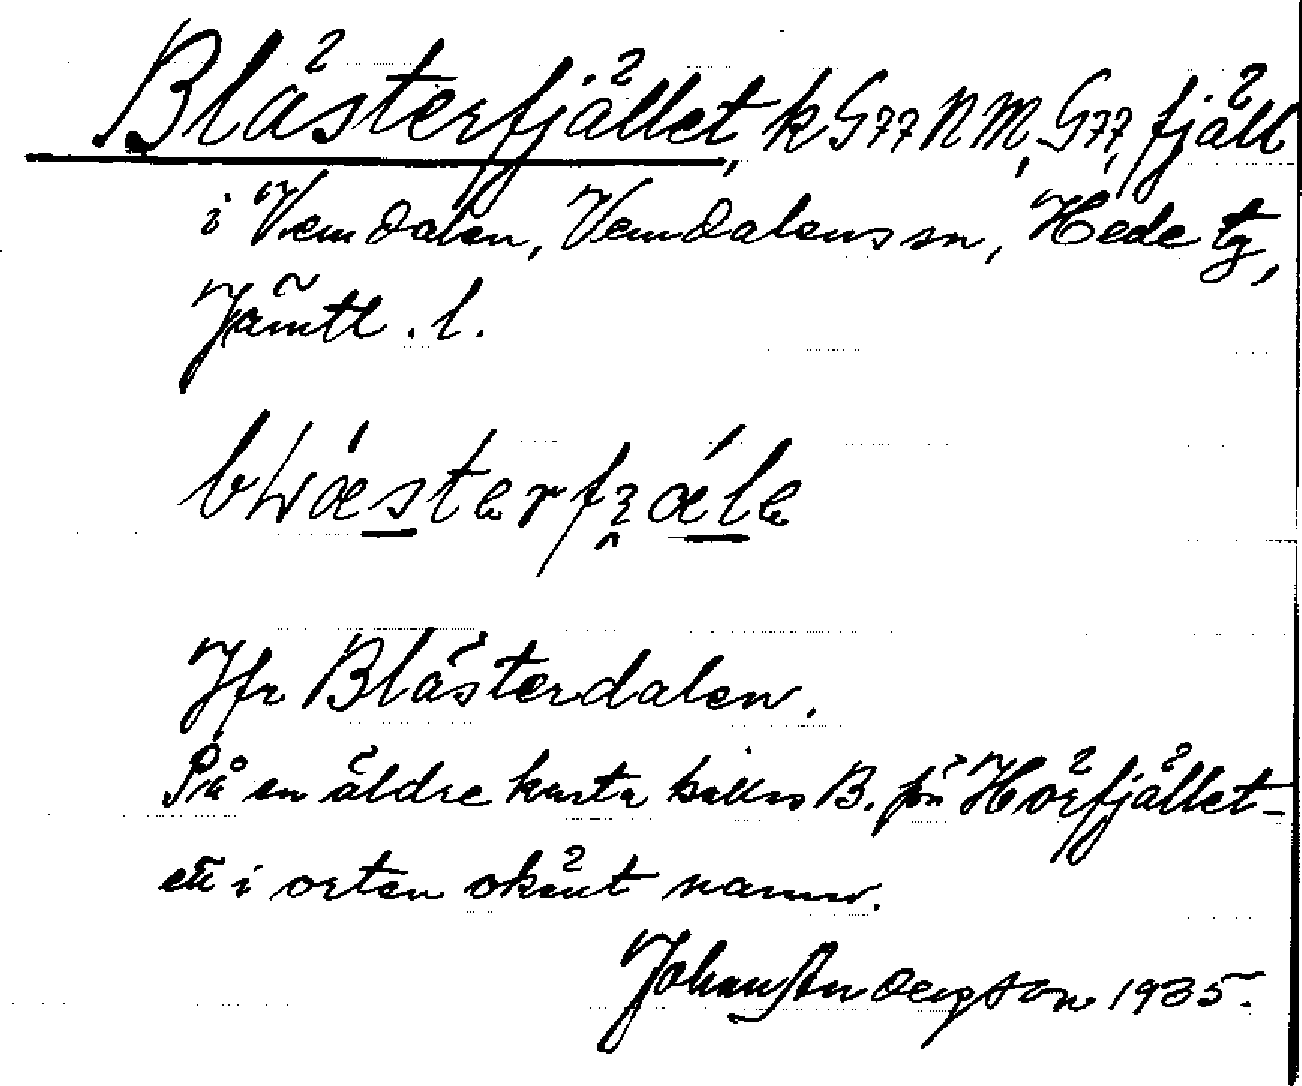 Blästerfjället, k G77 N M, G77, fjäll
i Vemdalen, Vemdalens sn, Hede tg,
Jämtl. l.
Jfr Blästerdalen.
På en äldre karta kallas B. för Horfjället –
ett i orten okänt namn.
Johan Andersson 1935.